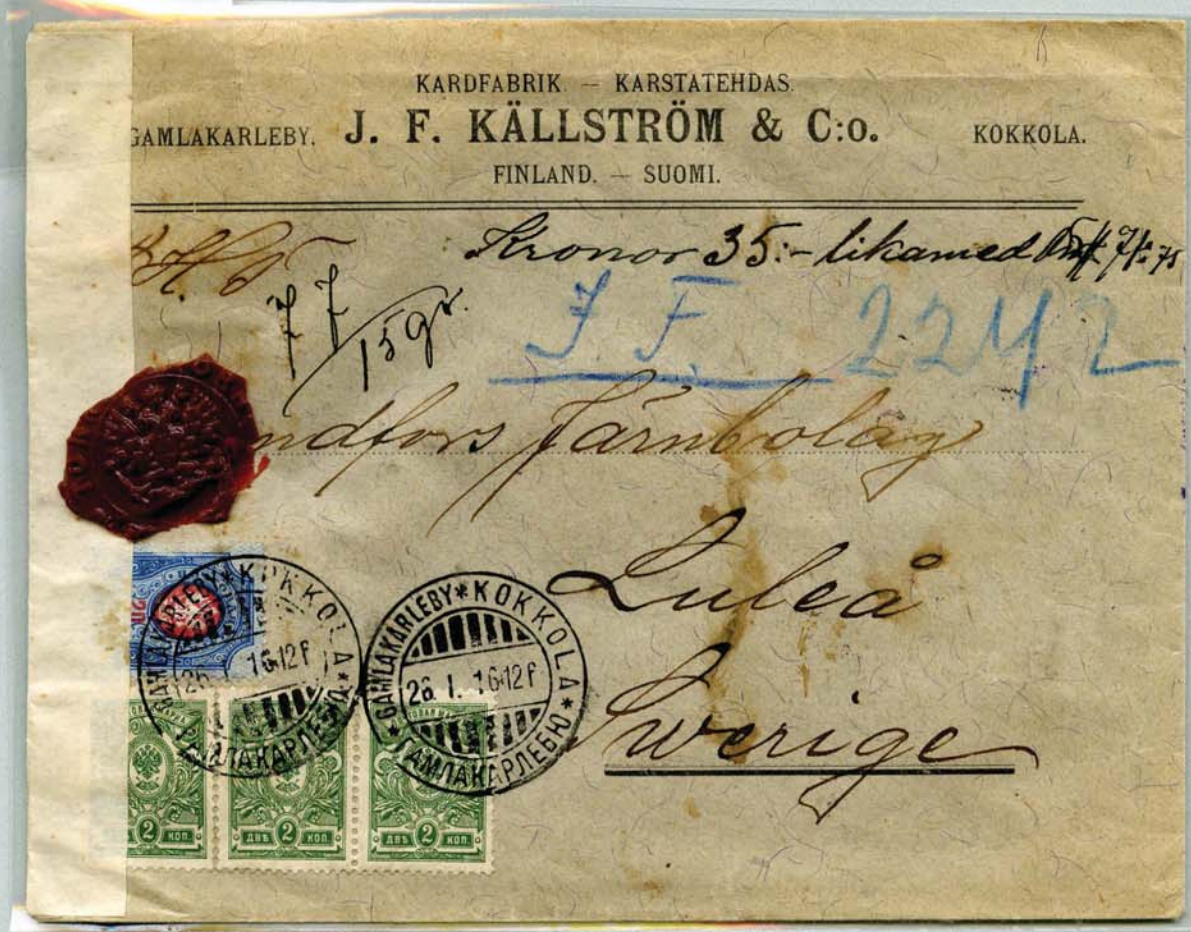 KARDFABRIK. — KARSTATEHDAS.
GAMLAKARLEBY. J. F. KÄLLSTRÖM & C:o. KOKKOLA.
FINLAND. — SUOMI.
Kronor 35:- likamed
77
15 gr.
J. F. 22
ndfors Järnbolag
Luleå
Sverige
GAMLAKARLEBY * KOKKOLA *
26. I. 16-12 f
ГАМЛАКАРЛЕБЮ
GAMLAKARLEBY * KOKKOLA *
26. I. 16-12 f
ГАМЛАКАРЛЕБЮ
2 КОП.
ДВѢ 2 КОП.
ДВѢ 2 КОП.